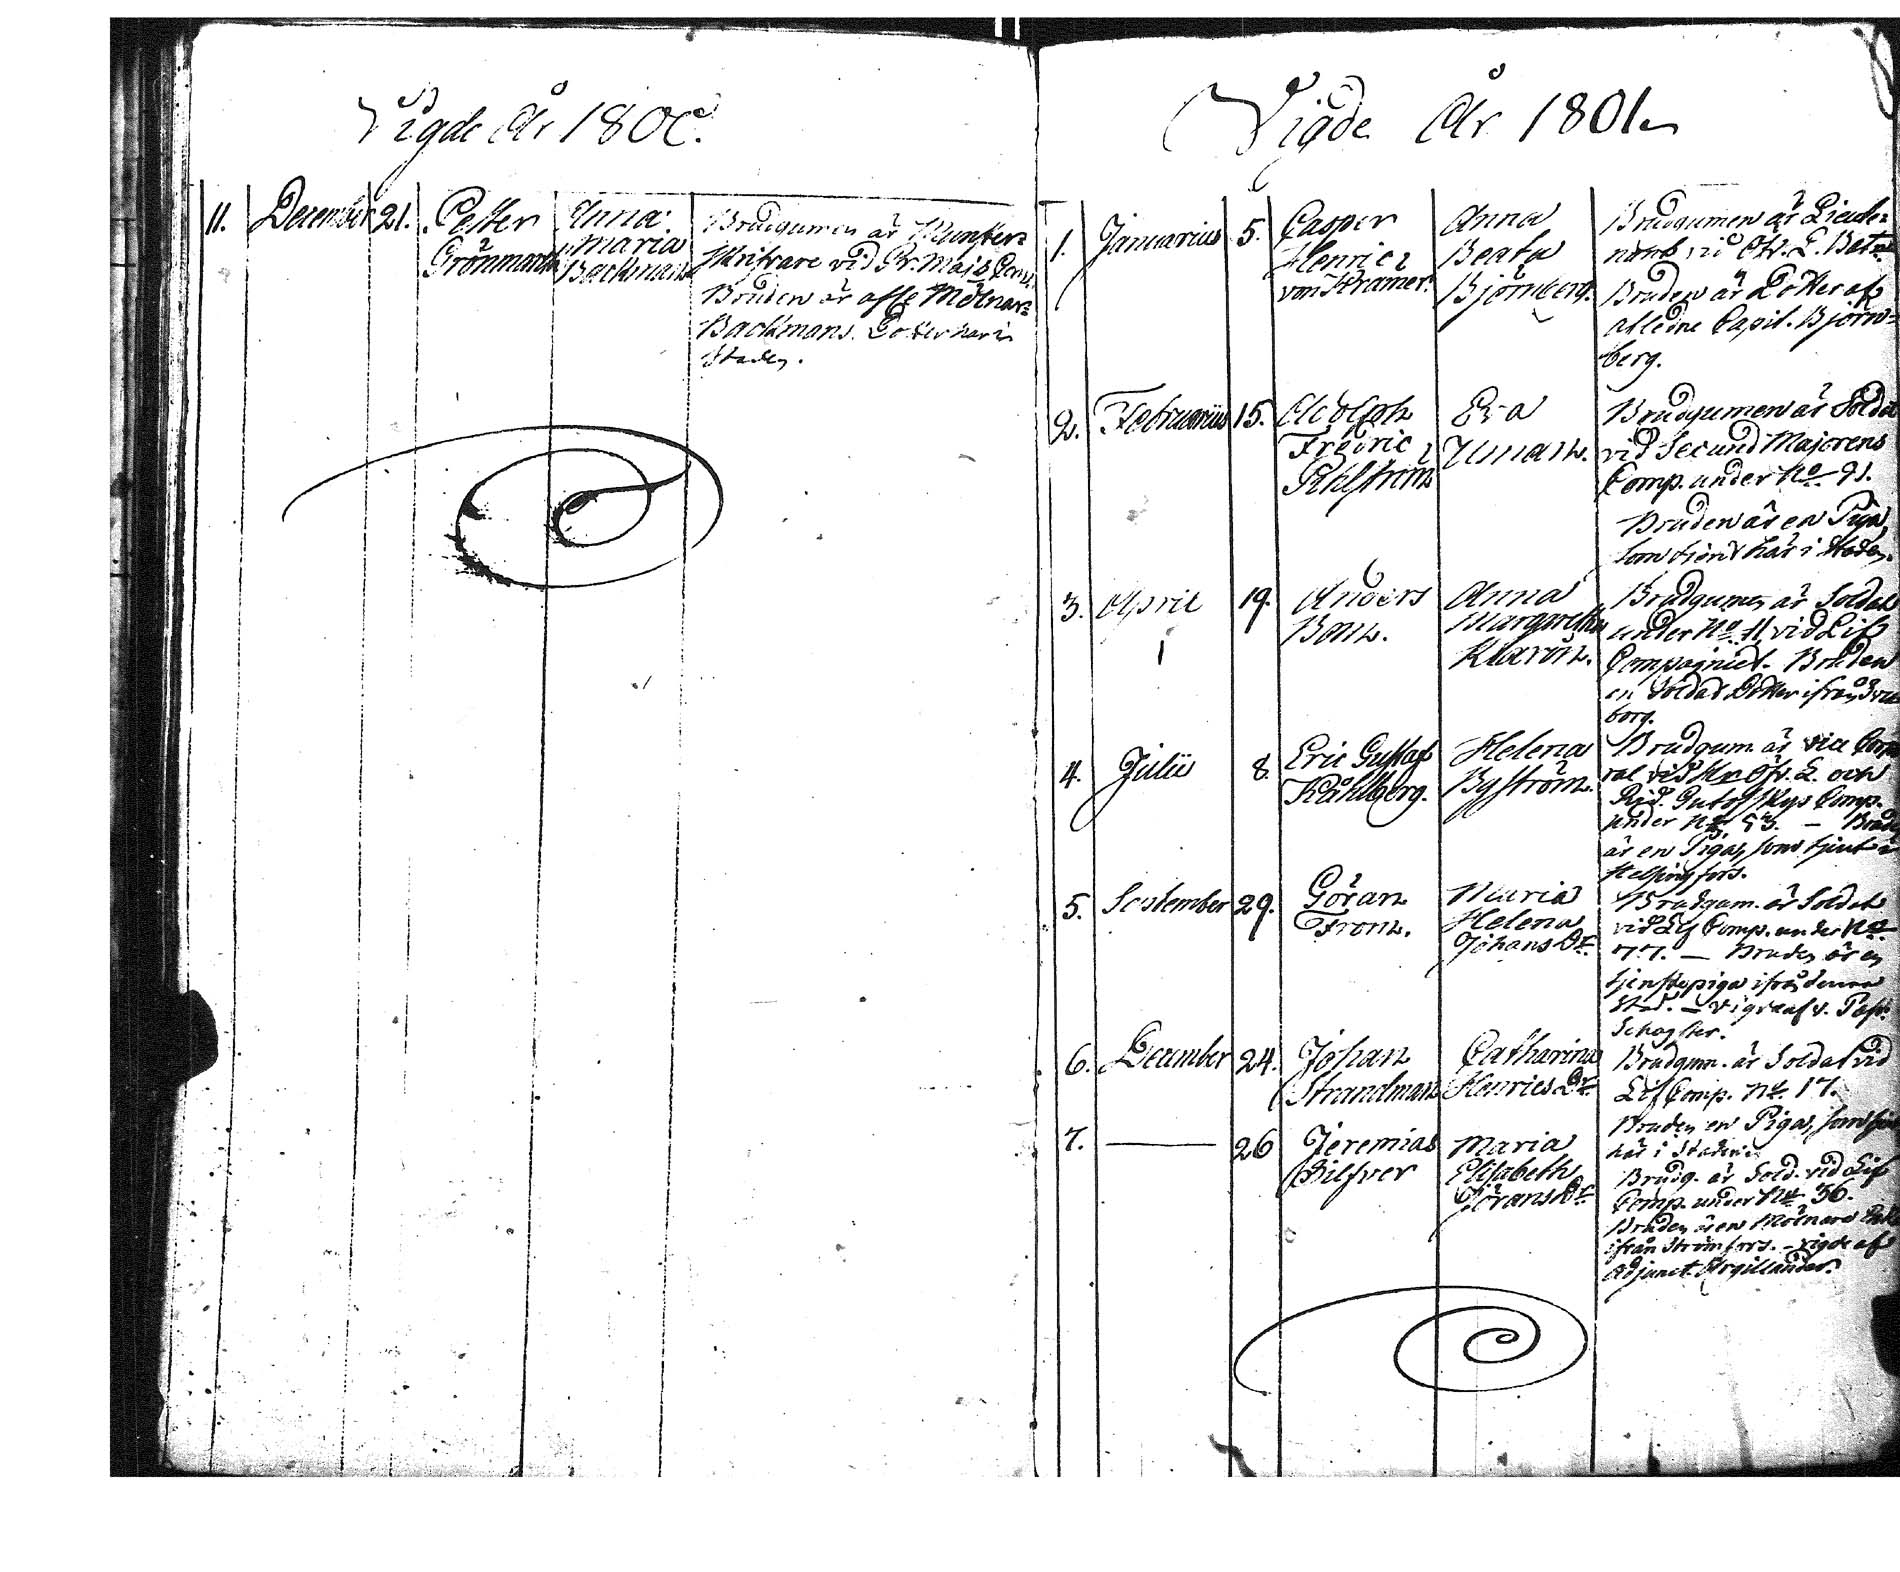 Vigde År 1800.
11. December 21. Petter Anna Brudgumen är Mönster-
Grönmark Maria skrifvare vid Gr. Majs Comp.
Backman Bruden är afl. Mölnar-
Backmans Dotter här i
Staden.
Vigde År 1801
1. Januarius 5. Casper Anna Brudgumen är Lieute-
Henric Beata nant vid Öfv. L. Batn
von Kræmer. Björnberg. Bruden är Dotter af
afledne Capit. Björn-
berg.
2. Februarius 15. Adolph Eva Brudgumen är Soldat
Fredric Uman. vid Secund Majorens
Comp. under No 91.
Bruden är en Piga,
som tient här i Staden.
3. April 19. Anders Anna Brudgumen är Soldat
Bom. Margaretha under No 11 vid Lif
Klarön. Compagniet. Bruden
en Soldat Dotter ifrån Svea
borg.
4. Julii 8. Eric Gustaf Helena Brudgum. är vice Corpo
Kåhlberg. Byström. ral vid Hr Öfv. L. och
Rid. Gutofskys Comp.
under No 53. — Brud
är en Piga, som tjent i
Helsingfors.
5. September 29. Göran Maria Brudgum. är Soldat
From. Helena vid Lif Comp. under No
Johans Dr. 77. — Bruden är en
tjenstepiga ifrån denna
Stad. — vigde af v. Past.
6. December 24. Johan Catharina Brudgum. är Soldat vid
Strandman Henrics Dr. Lif Comp. No 17.
Bruden en Piga, som
här i Staden
7. — 26 Jeremias Maria Brudg. är Sold. vid Lif
Silfver Elisabeth Comp. under No 36.
Görans Dr. Bruden är en Mölnare
ifrån Strömfors. — vigde af
Adjunct Argillander.